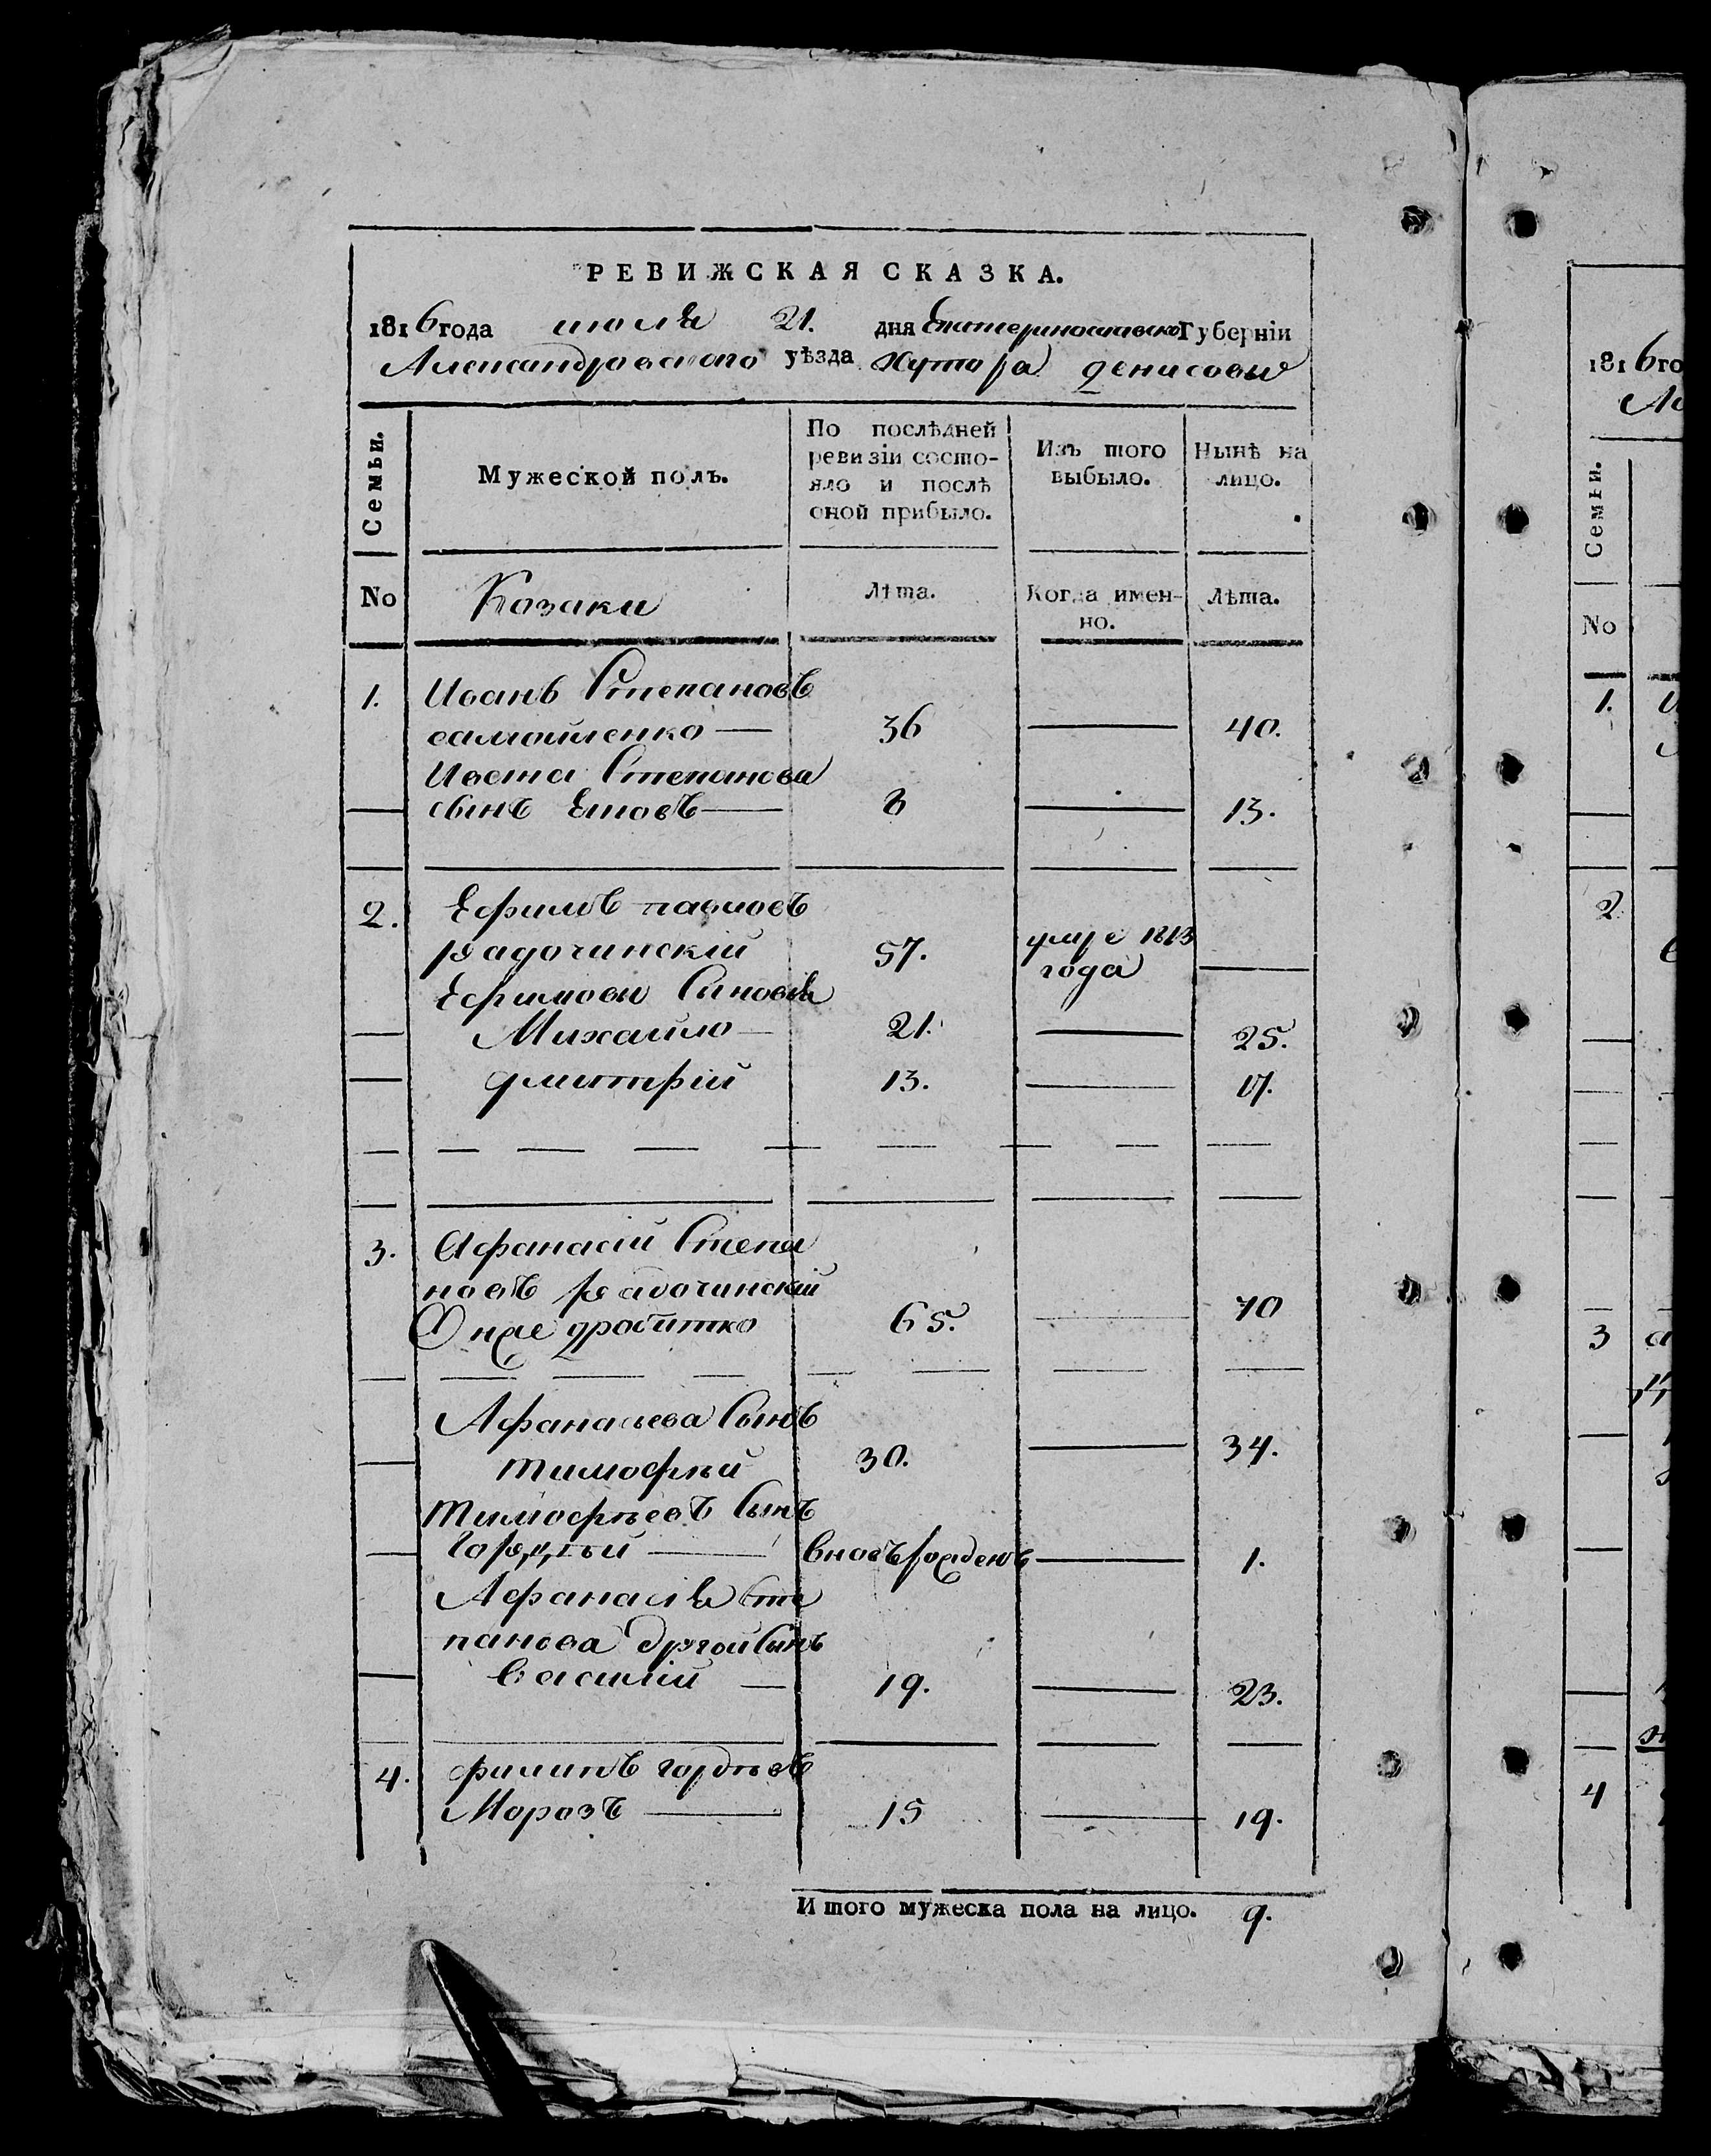 РЕВИЖСКАЯ СКАЗКА.
1816 года июля 21. дня Екатеринославской Губерніи
Александровского уѣзда хутора денисовы
Семьи.
Мужеской полъ.
По послѣдней ревизіи состо-
яло и послѣ
оной прибыло.
Изъ того
выбыло.
Нынѣ на
лицо.
No
Козаки
Лѣта.
Когда имен-
но.
Лѣта.
1. Иванъ Степановъ
самойленко — 36 — 40.
Ивана Степанова
— сынъ — 8 — 13.
2. Ефимъ павловъ
57. умре 1813
года —
Ефимовы Сыновья
— Михайло — 21. — 25.
— дмитрій 13. — 17.
3. Афанасій Степа
новъ
65. — 70
Афанасьева Сынъ
— тимофѣй 30. — 34.
тимофѣевъ Сынъ
— Гордѣй — вновърожденъ — 1.
Афанасія Сте
панова другой Сынъ
— василій — 19. — 23.
4. филипъ гордѣевъ
Морозъ — 15 — 19.
Итого мужеска пола на лицо. 9.
1816 го
Семьи.
No
1.
2
3
4